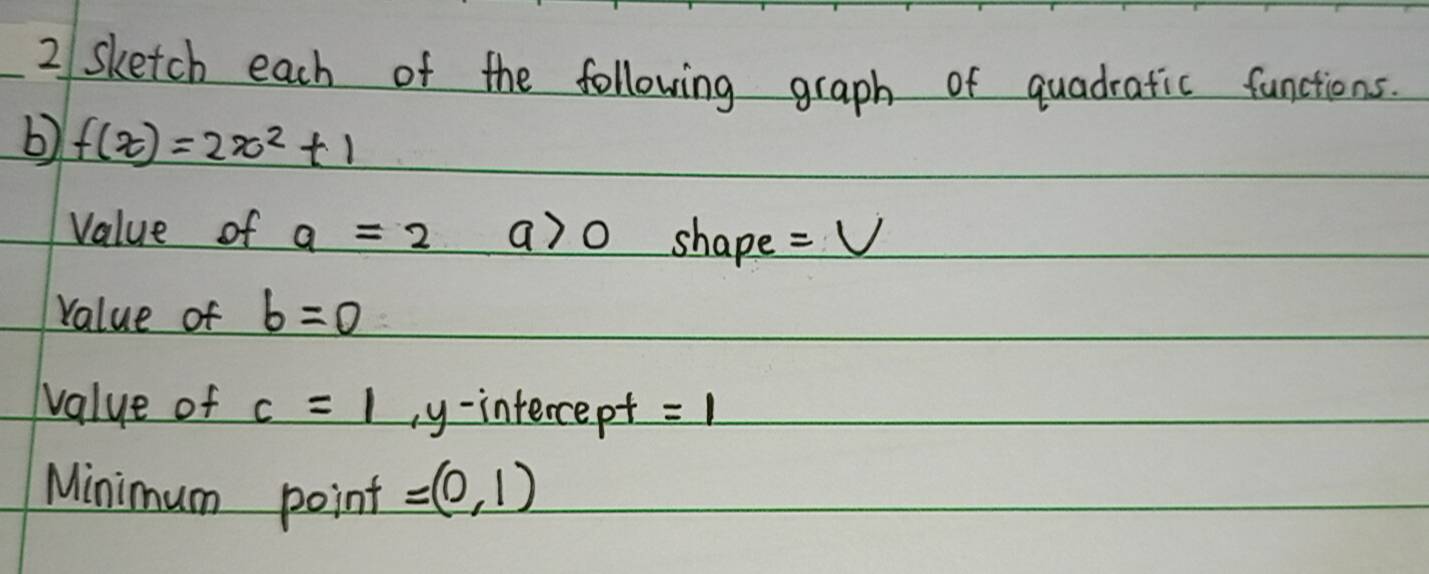 2 Sketch each of the following graph of quadratic functions.
b) f(x) = 2x² + 1
Value of a = 2 a > 0 shape = ∪
Value of b = 0
Value of c = 1 , y-intercept = 1
Minimum point = (0, 1)